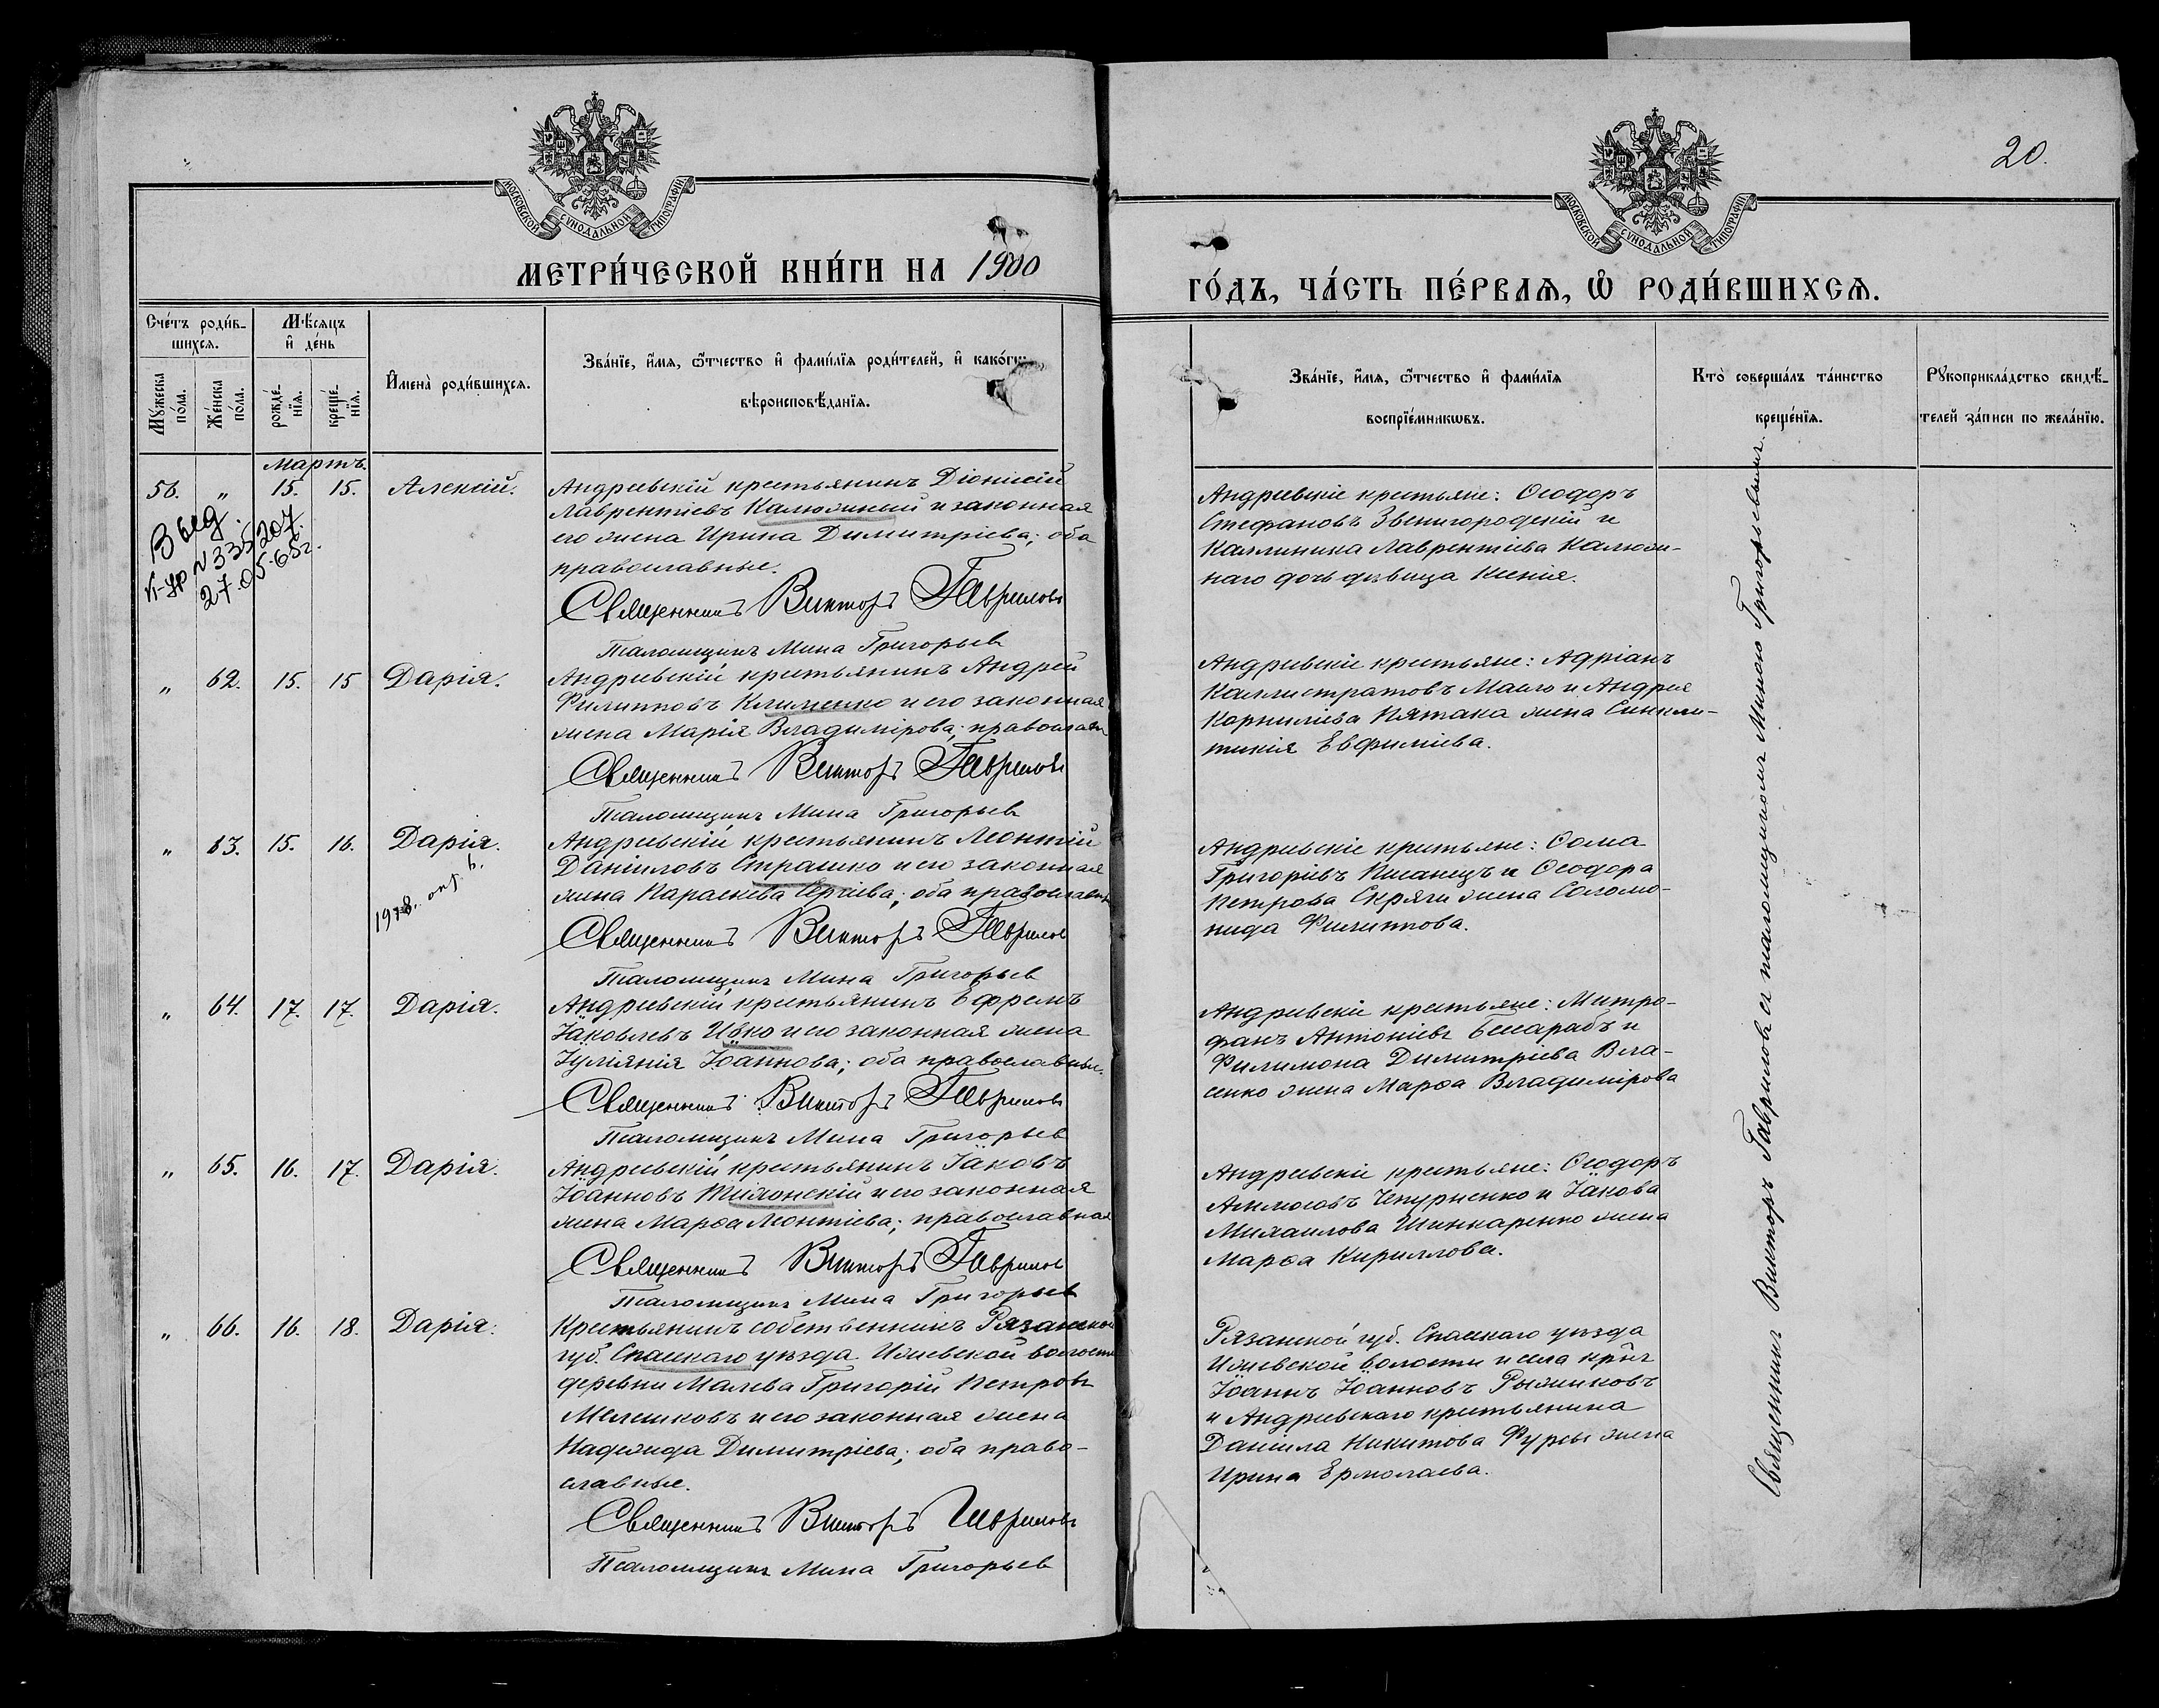 20.
МОСКОВСКОЙ СѴНОДАЛЬНОЙ ТИПОГРАФІИ
МОСКОВСКОЙ СѴНОДАЛЬНОЙ ТИПОГРАФІИ
МЕТРИ́ЧЕСКОЙ КНИ́ГИ НА 1900
ГО́ДЪ, ЧА́СТЬ ПЕ́РВАѦ, Ѡ҆ РОДИ́ВШИХСѦ.
Сче́тъ роди́в-
шихсѧ.
Мꙋ́жеска по́ла.
Же́нска по́ла.
Мѣ́сѧцъ
и҆ де́нь
рожде́-нїѧ.
креще́-нїѧ.
И҆мена̀ роди́вшихсѧ.
Зва́нїе, и҆́мѧ, ѻ҆́тчество и҆ фами́лїѧ роди́телей, и҆ како́гѡ
вѣроисповѣ́данїѧ.
Зва́нїе, и҆́мѧ, ѻ҆́тчество и҆ фами́лїѧ
воспрїе́мникѡвъ.
Кто̀ соверша́лъ та́инство
креще́нїѧ.
Рꙋкоприкла́дство свидѣ́-
телей за́писи по жела́нїю.
Мартъ.
56. „ 15. 15. Алексій.
Выд.
№ 335207.
27.05.65г.
Андреевскій крестьянинъ Діонисій
Лаврентіевъ Калюжный и законная
его жена Ирина Димитріева; оба
православные.
Священникъ Викторъ Гавриловъ
Псаломщикъ Мина Григорьев
Андреевскіе крестьяне: Ѳеодоръ
Стефановъ Звенигородскій и
Каллиника Лаврентіева Калюж-
наго дочь дѣвица Ксенія.
„ 62. 15. 15 Дарія.
Андреевскій крестьянинъ Андрей
Филипповъ Клименко и его законная
жена Марія Владимірова; православн
Священникъ Викторъ Гавриловъ
Псаломщикъ Мина Григорьев
Андреевскіе крестьяне: Адріанъ
Каллистратовъ Малго и Андрея
Корниліева Пятака жена Синкли-
тикія Евфиміева.
„ 63. 15. 16. Дарія.
1918. окт. 6.
Андреевскій крестьянинъ Леонтій
Даніиловъ Страшко и его законная
жена Параскева Сергіева; оба православн
Священникъ Викторъ Гаврилов
Псаломщикъ Мина Григорьев
Андреевскіе крестьяне: Ѳома
Григоріевъ Писанецъ и Ѳеодора
Петрова Скряги жена Соломо-
нида Филиппова.
„ 64. 17. 17. Дарія.
Андреевскій крестьянинъ Ефремъ
Іаковлевъ Ивко и его законная жена
Іуліянія Іоаннова; оба православные.
Священникъ Викторъ Гавриловъ
Псаломщикъ Мина Григорьев
Андреевскіе крестьяне: Митро-
фанъ Антоніевъ Бессарабъ и
Филимона Димитріева Вла-
сенко жена Марѳа Владимірова
„ 65. 16. 17. Дарія.
Андреевскій крестьянинъ Іаковъ
Іоанновъ и его законная
жена Марѳа Леонтіева; православная
Священникъ Викторъ Гаврилов
Псаломщикъ Мина Григорьев
Андреевскіе крестьяне: Ѳеодоръ
Аммосовъ Чепурненко и Іакова
Михаилова Шинкаренко жена
Марѳа Кириллова.
„ 66. 16. 18. Дарія.
Крестьянинъ собственникъ Рязанской
губ. Спасскаго уѣзда Ижевской волости
деревни Малева Григорій Петровъ
Мелешковъ и его законная жена
Надежда Димитріева; оба право-
славные.
Священникъ Викторъ Гавриловъ
Псаломщикъ Мина Григорьев
Рязанской губ. Спасскаго уѣзда
Ижевской волости и села крнъ
Іоаннъ Іоанновъ Рыжиковъ
и Андреевскаго крестьянина
Даніила Никитова Фурсы жена
Ирина Ермолаева.
Священникъ Викторъ Гавриловъ съ псаломщикомъ Миною Григорьевымъ.